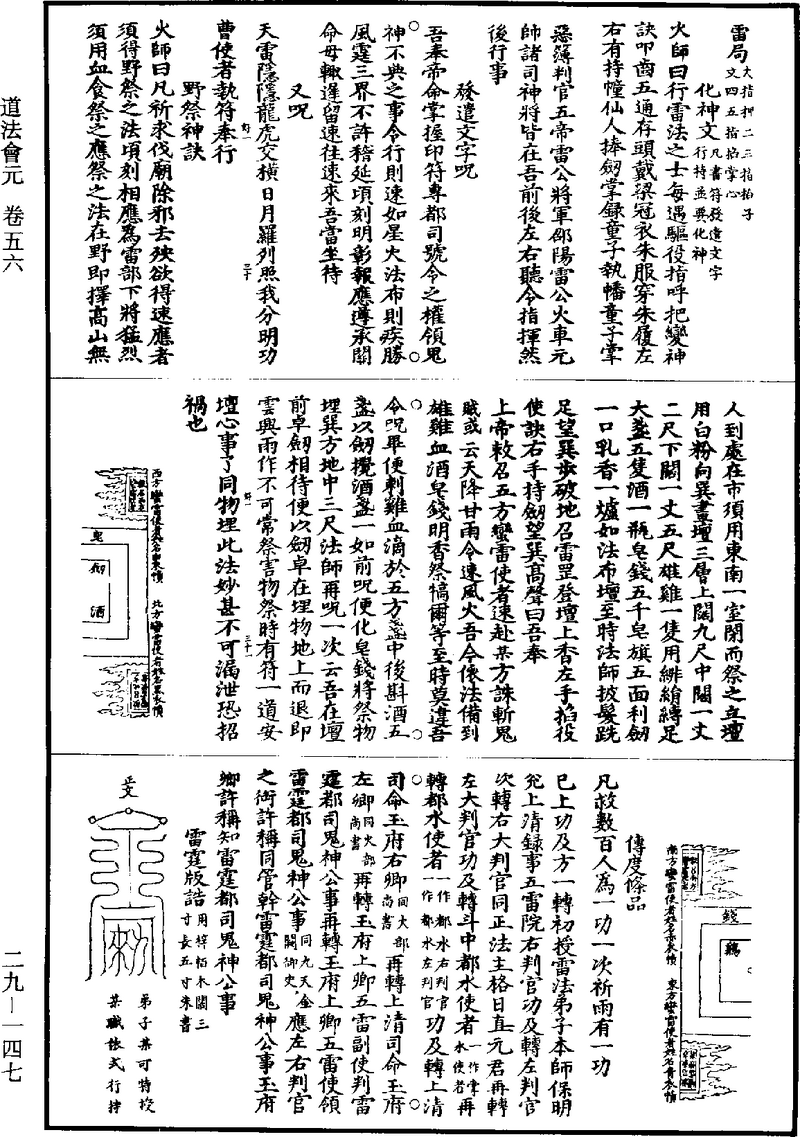 雷局大指押二三指拍子文四五指掐掌心
化神文凡書符發遣文字行持並與化神
火師曰行雷法之士每遇驅役指呼把變神
訣叩齒五通存頭戴梁冠衣朱服穿朱履左
右有持幢仙人捧劒掌録童子執幡童子掌
惡簿判官五帝雷公將軍邵陽雷公火車元
帥諸司神將皆在吾前後左右聽令指揮然
後行事
發遣文字呪
吾奉帝命掌握印符專都司號令之權領鬼
神不典之事令行則速如星火法布則疾勝
風霆三界不許稽延頃刻明彰報應遵承關
命毋輙遲留速往速來吾當坐待
又呪
天雷隱隱龍虎交橫日月羅列照我分明功
曹使者執符奉行
野祭神訣
火師曰凡祈求伐廟除邪去殃欲得速應者
須得野祭之法頃刻相應為雷部下將猛烈
須用血食祭之應祭之法在野即擇高山無
人到處在市須用東南一室閑而祭之立壇
用白粉向巽畫壇三層上闊九尺中闊一丈
二尺下闊一丈五尺雄雞一隻用緋絹縛足
大盞五隻酒一瓶皂錢五千皂旗五面利劒
一口乳香一爐如法布壇至時法師披髮跣
足望巽步破地召雷罡登壇上香左手掐役
使訣右手持劒望巽高聲曰吾奉
上帝敕召五方蠻雷使者速赴某方誅斬鬼
賊或云天降甘雨令速風火吾今依法備到
雄雞血酒皂錢明香祭犒爾等至時莫違吾
令呪畢便刺雞血滴於五方盞中後斟酒五
盞以劒攪酒盞一如前呪便化皂錢將祭物
埋巽方地中三尺法師再呪一次云吾在壇
前卓劒相待便以劒卓在埋物地上而退即
雲興雨作不可常祭害物祭時有符一道安
壇心事了同物埋此法妙甚不可漏泄恐招
禍也
西方蠻雷使者姓名素衣幘
北方蠻雷使者姓名皂衣幘
皂
劒
酒
南方蠻雷使者姓名赤衣幘
東方蠻雷使者姓名青衣幘
錢
鷄
傳度條品
凡救數百人為一功一次祈雨有一功
已上功及方一轉初授雷法弟子本師保明
充上清録事五雷院右判官功及轉左判官
次轉右大判官同正法主格日直元君再轉
左大判官功及轉斗中都水使者一作掌水使者再
轉都水使者一作都水右判官一作都水左判官功及轉上清
司命玉府右卿同火部尚書再轉上清司命玉府
左卿同火部尚書再轉玉府上卿五雷副使判雷
霆都司鬼神公事再轉玉府上卿五雷使領
雷霆都司鬼神公事同九天金闕御史應左右判官
之銜許稱同管幹雷霆都司鬼神公事玉府
卿許稱知雷霆都司鬼神公事
雷霆版誥用梓栢木闊三寸長五寸朱書
正文
弟子某可特授
某職依式行持
道法會元　卷五六
二九—一四七